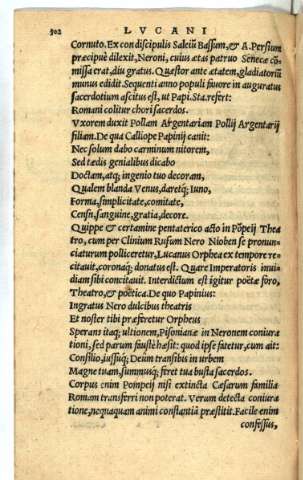 302 LVCANI
Cornuto. Ex con discipulis Saleiũ Bassum, & A. Persium
præcipuè dilexit, Neroni, cuius ætas patruo Senecæ cõ-
missa erat, diu gratus. Quæstor ante ætatem, gladiatoriũ
munus edidit. Sequenti anno populi fauore in auguratus
sacerdotium ascitus est, ut Papi. Sta. refert:
Romani colitur chori sacerdos.
Vxorem duxit Pollam Argentariam Pollij Argentarij
filiam. De qua Calliope Papinij canit:
Nec solum dabo carminum nitorem,
Sed tædis genialibus dicabo
Doctam, atq; ingenio tuo decoram,
Qualem blanda Venus, daretq; Iuno,
Forma, simplicitate, comitate,
Censu, sanguine, gratia, decore.
Quippe & certamine pentaterico acto in Põpeij Thea
tro, cum per Clinium Rufum Nero Nioben se pronun-
ciaturum polliceretur, Lucanus Orphea ex tempore re-
citauit, coronaq; donatus est. Quare Imperatoris inui-
diam sibi concitauit. Interdictum est igitur poëtæ foro,
Theatro, & poëtica. De quo Papinius:
Ingratus Nero dulcibus theatris
Et noster tibi præferetur Orpheus
Sperans itaq; ultionem, Pisonianæ in Neronem coniura
tioni, sed parum faustè hæsit: quod ipse fatetur, cum ait:
Consilio, iussuq; Deum transibis in urbem
Magne tuam, summusq; feret tua busta sacerdos.
Corpus enim Pompeij nisi extincta Cæsarum familia
Romam transferri non poterat. Verum detecta coniura
tione, nequaquam animi constantiã præstitit. Facile enim
confessus,